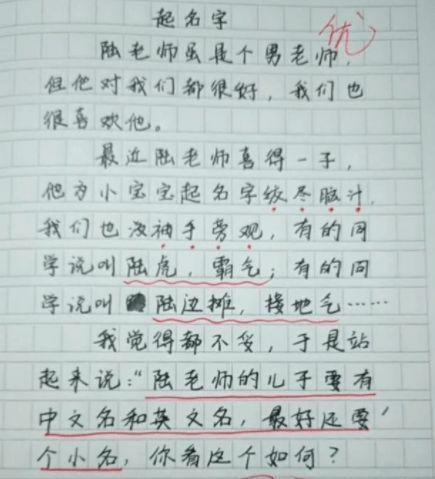 起名字
优
陆老师虽是个男老师，
但他对我们都很好，我们也
很喜欢他。
最近陆老师喜得一子，
他为小宝宝起名字绞尽脑汁，
我们也没袖手旁观，有的同
学说叫陆虎，霸气；有的同
学说叫陆边摊，接地气……
我觉得都不妥，于是站
起来说：“陆老师的儿子要有
中文名和英文名，最好还要
个小名，你看这个如何？